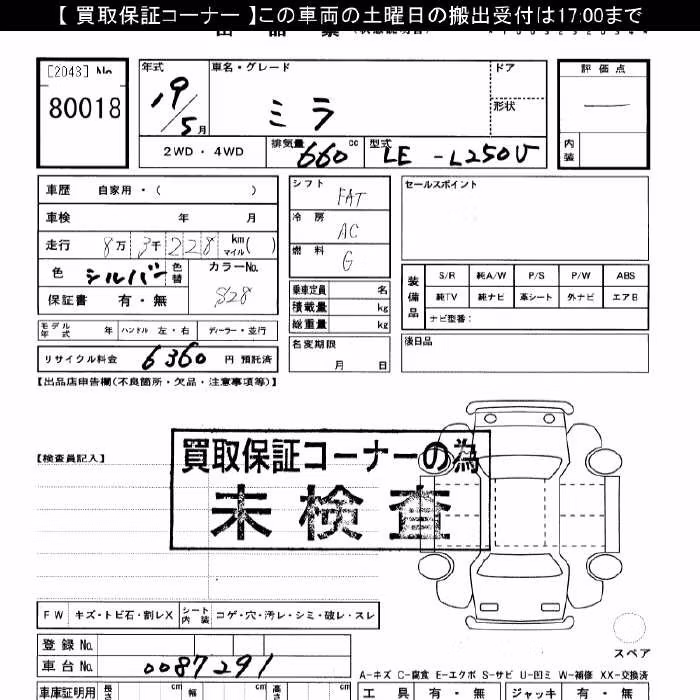 【 買取保証コーナー 】この車両の土曜日の搬出受付は17:00まで
[2043] No
80018
年式
19/5月
車名・グレード
ミラ
ドア
形状
評価点
—
内装
2WD・4WD
排気量 660 cc
型式 LE-L250V
車歴 自家用・( )
車検 年 月
走行 8万3千228 km マイル( )
色 シルバー 色替
カラーNo. S28
保証書 有・無
シフト FAT
冷房 AC
燃料 G
乗車定員 名
積載量 kg
総重量 kg
名変期限
月 日
セールスポイント
装備品
S/R 純A/W P/S P/W ABS
純TV 純ナビ 革シート 外ナビ エアB
ナビ型番:
後日品
モデル年式 年 ハンドル 左・右 ディーラー・並行
リサイクル料金 6360 円 預託済
【出品店申告欄(不良箇所・欠品・注意事項等)】
【検査員記入】
買取保証コーナーの為
未検査
FW キズ・トビ石・割レX シート内装 コゲ・穴・汚レ・シミ・破レ・スレ
登録 No.
車台 No. 0087291
スペア
A-キズ C-腐食 E-エクボ S-サビ U-凹ミ W-補修 XX-交換済
車庫証明用 長さ cm 幅 cm 高さ cm
工具 有・無 ジャッキ 有・無